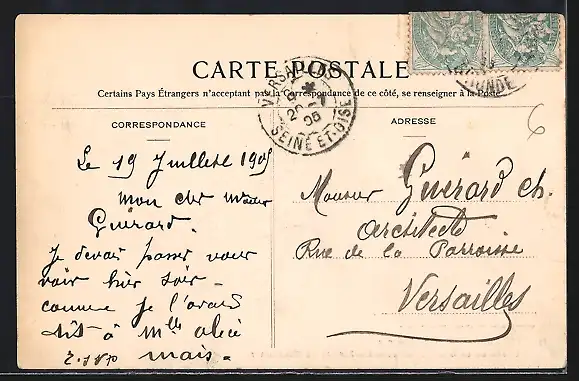 CARTE POSTALE
Certains Pays Étrangers n'acceptant pas la Correspondance de ce côté, se renseigner à la Poste
VERSAILLES
SEINE-ET-OISE
CORRESPONDANCE
Le 19 Juillet 1905
mon cher
Guérard.
Je devais passer vous
voir hier soir -
comme je l'avais
dit à Mlle Alice
mais -
ADRESSE
Monsieur Guérard ch.
architecte
Rue de la Parroisse
Versailles
6